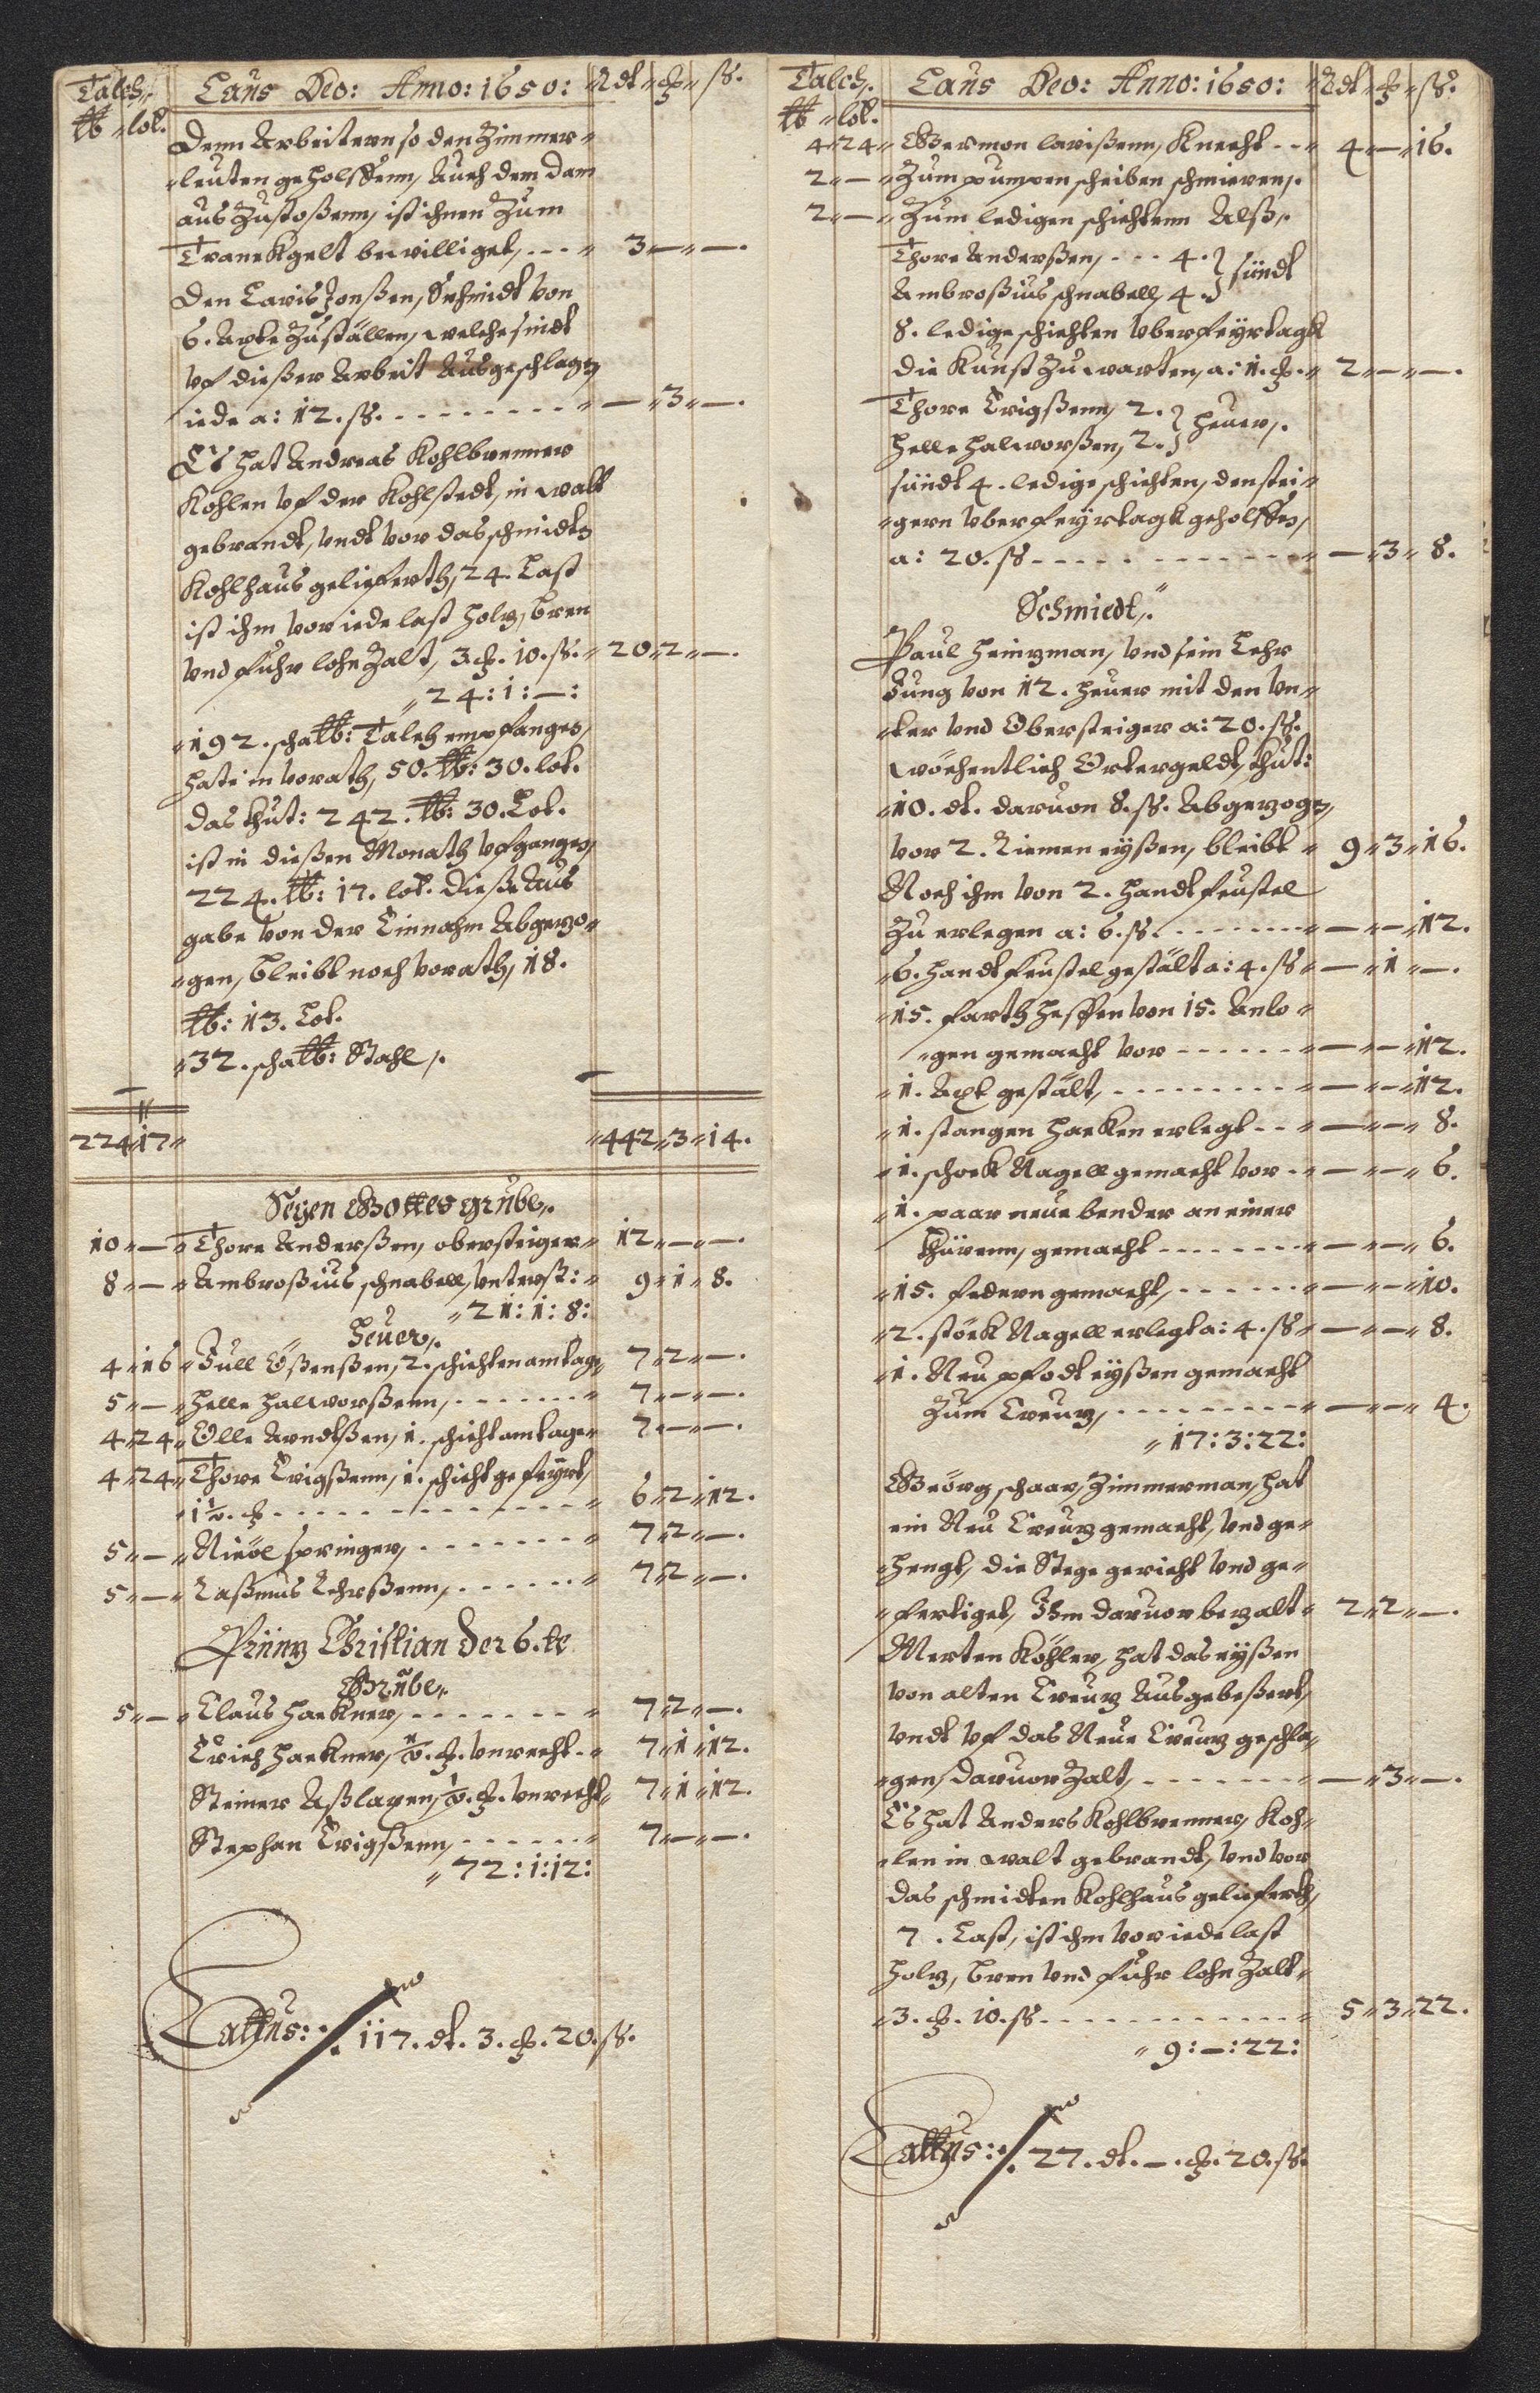 Talch, Laus Deo: Anno: 1650: Rdt ß.
lb lot.
Denn Arbeitern so den Zimmer-
leuten geholffenn, Auch dem dam
aus Zustoßenn, ist ihnen Zum
Tranckgelt bewilliget, 3 — —.
Den Laris Jonßen, Schmidt von
6. Axte Zuställen, welche sindt
vf dießer Arbeit Ausgeschlagen
iede a: 12. ß. — 3 —.
Es hat Andreas Kohlbrenner
Kohlen vf der Kohlstedt, in walt
gebrandt, vndt vor das schmidten
Kohlhaus gelieferth, 24. Last
ist ihm vor iede last holz, bren
vnd fuhr lohn Zalt, 3. 10. ß. 20 2 —.
24: 1: —:
192. schalb: Talch empfangen,
hat in vorath, 50. lb: 30. lot.
das thut: 242. lb: 30. Lot.
ist in dießen Monath vfgangen,
224. lb: 17. lot. dieße Aus
gabe von der Einnahm Abgezo-
gen, bleibt noch vorath, 18.
lb: 13. Lot.
32. schalb: Stahl,
224 17 442 3 14.
Segen Gottes grube,
10 — Thore Anderßen, obersteiger 12 — —.
8 — Ambroßius schnabell, vnterst: 9 1 8.
21: 1: 8:
Heuer,
4 16 Jull Ößenßen, 2. schichten am tage, 7 2 —.
5 — Helle Halworßenn, 7 — —.
4 24 Olle Arndtßen, 1. schicht am tage 7 — —.
4 24 Thore Erigßenn, 1. schicht gefeyrt,
1½. 6 2 12.
5 — Nicöl springer, 7 2 —.
5 — Raßmus Lehrßenn, 7 2 —.
Prinz Christian der 6. te
Grube,
5 — Claus Hackner, 7 2 —.
Erich Hackner, ½. vnrecht 7 1 12.
Steiner Aßlaxen, ½. vnrecht 7 1 12.
Stephan Erigßenn, 7 — —.
72: 1: 12:
Lattus: 117. dt. 3. 20. ß.
Talch, Laus Deo: Anno: 1650: Rdt ß.
lb lot.
4 24 Germon larißenn, Knecht 4 — 16.
2 — Zum pumpen scheiben schmieren,
2 — Zum ledigen schichtenn Alß,
Thore Anderßen, 4. } sündt
Ambroßius schnabell, 4.
8. ledige schichten vber feyrtagk
die Kunst Zu warten, a: 1. 2 — —.
Thore Erigßenn, 2. } heuer,
Helle Halworßen, 2.
sündt 4. ledige schichten, den stei-
gern vber feyrtagk geholffen,
a: 20. ß — 3 8.
Schmiedt,
Paul Heinzman, vnd sein Lehr
Jung von 12. heuer mit den vn-
ter vnd Obersteiger a: 20. ß.
wöchentlich Ortergeldt, thut:
10. dt. daruon 8. ß. Abgezogen,
vor 2. Riemen eyßen, bleibt 9 3 16.
Noch ihm von 2. handt feustel
Zu erlegen a: 6. ß. — — 12.
6. handt feustel gestält a: 4. ß — 1 —.
15. farth heffen von 15. Anlo-
gen gemacht vor — — 12.
1. Axt gestält, — — 12.
1. stangen hacken erlegt — — 8.
1. schock Nagell gemacht vor — — 6.
1. paar neue bender an einer
thürenn, gemacht — — 6.
15. federn gemacht, — — 10.
2. störk Nagell erlegt a: 4. ß — — 8.
1. Neu pfodt eyßen gemacht
Zum Creuz, — — 4.
17: 3: 22:
Geörg schaar, Zimmerman, hat
ein Neu Creuz gemacht, vnd ge-
hengt, die Stege gericht vnd ge-
fertiget, Ihm daruor bezalt 2 2 —.
Merten Köhler, hat das eyßen
von alten Creuz Ausgebeßert,
vndt vf das Neue Creuz geschla-
gen, daruor Zalt, — 3 —.
Es hat Anders Kohlbrenner, Koh-
len in walt gebrandt, vnd vor
das schmidten Kohlhaus gelieferth,
7. Last, ist ihm vor iede last
holz, bren vnd fuhr lohn Zalt
3. 10. ß 5 3 22.
9: —: 22:
Lattus: 27. dt. —. 20. ß.